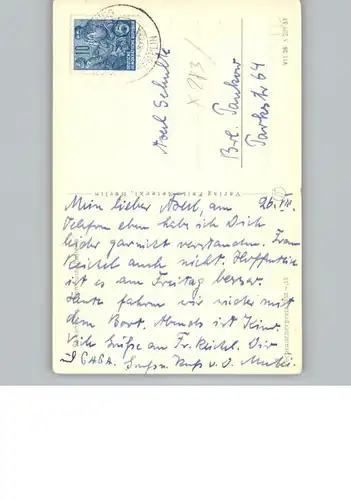 Axel Schulte
Brl. Pankow
Parkstr 64
x 283/
Verlag Felix Setecki, Berlin
Mein lieber Axel, am 26. VII.
Telefon eben habe ich Dich
leider garnicht verstanden. Frau
Reichel auch nicht. Hoffentlich
ist es am Freitag besser.
Heute fahren wir wieder mit
dem Boot. Abends ist Kino.
Viele Grüße an Fr. Reichel. Dir
Kuß v. d. Mutti.